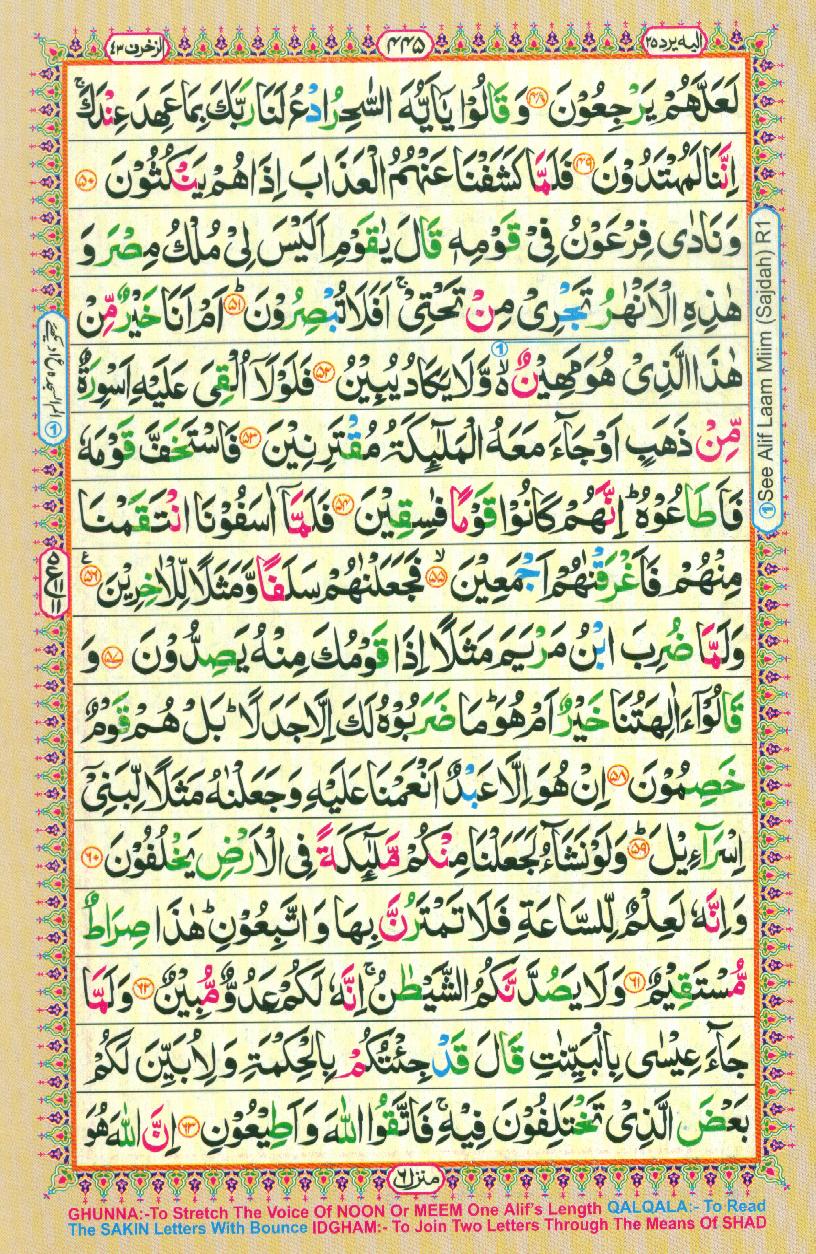 الزخرف ٤٣
٤٤٥
الیه یرد ٢٥
لَعَلَّهُمْ يَرْجِعُوْنَ ﴿٤٨﴾ وَقَالُوْا يٰۤاَيُّهَ السّٰحِرُ ادْعُ لَنَا رَبَّكَ بِمَا عَهِدَ عِنْدَكَ ۚ
اِنَّنَا لَمُهْتَدُوْنَ ﴿٤٩﴾ فَلَمَّا كَشَفْنَا عَنْهُمُ الْعَذَابَ اِذَا هُمْ يَنْكُثُوْنَ ﴿٥٠﴾
وَنَادٰى فِرْعَوْنُ فِيْ قَوْمِهٖ قَالَ يٰقَوْمِ اَلَيْسَ لِيْ مُلْكُ مِصْرَ وَ
هٰذِهِ الْاَنْهٰرُ تَجْرِيْ مِنْ تَحْتِيْ ۚ اَفَلَا تُبْصِرُوْنَ ؕ ﴿٥١﴾ اَمْ اَنَا خَيْرٌ مِّنْ
هٰذَا الَّذِيْ هُوَ مَهِيْنٌ ۙ۬ وَّلَا يَكَادُ يُبِيْنُ ﴿٥٢﴾ فَلَوْلَاۤ اُلْقِيَ عَلَيْهِ اَسْوِرَةٌ
مِّنْ ذَهَبٍ اَوْ جَآءَ مَعَهُ الْمَلٰٓئِكَةُ مُقْتَرِنِيْنَ ﴿٥٣﴾ فَاسْتَخَفَّ قَوْمَهٗ
فَاَطَاعُوْهُ ؕ اِنَّهُمْ كَانُوْا قَوْمًا فٰسِقِيْنَ ﴿٥٤﴾ فَلَمَّاۤ اٰسَفُوْنَا انْتَقَمْنَا
مِنْهُمْ فَاَغْرَقْنٰهُمْ اَجْمَعِيْنَ ۙ ﴿٥٥﴾ فَجَعَلْنٰهُمْ سَلَفًا وَّمَثَلًا لِّلْاٰخِرِيْنَ ﴿٥٦﴾ ع
وَلَمَّا ضُرِبَ ابْنُ مَرْيَمَ مَثَلًا اِذَا قَوْمُكَ مِنْهُ يَصِدُّوْنَ ﴿٥٧﴾ وَ
قَالُوْۤا ءَاٰلِهَتُنَا خَيْرٌ اَمْ هُوَ ؕ مَا ضَرَبُوْهُ لَكَ اِلَّا جَدَلًا ؕ بَلْ هُمْ قَوْمٌ
خَصِمُوْنَ ﴿٥٨﴾ اِنْ هُوَ اِلَّا عَبْدٌ اَنْعَمْنَا عَلَيْهِ وَجَعَلْنٰهُ مَثَلًا لِّبَنِيْۤ
اِسْرَآءِيْلَ ؕ ﴿٥٩﴾ وَلَوْ نَشَآءُ لَجَعَلْنَا مِنْكُمْ مَّلٰٓئِكَةً فِي الْاَرْضِ يَخْلُفُوْنَ ﴿٦٠﴾
وَاِنَّهٗ لَعِلْمٌ لِّلسَّاعَةِ فَلَا تَمْتَرُنَّ بِهَا وَاتَّبِعُوْنِ ؕ هٰذَا صِرَاطٌ
مُّسْتَقِيْمٌ ﴿٦١﴾ وَلَا يَصُدَّنَّكُمُ الشَّيْطٰنُ ۚ اِنَّهٗ لَكُمْ عَدُوٌّ مُّبِيْنٌ ﴿٦٢﴾ وَلَمَّا
جَآءَ عِيْسٰى بِالْبَيِّنٰتِ قَالَ قَدْ جِئْتُكُمْ بِالْحِكْمَةِ وَلِاُبَيِّنَ لَكُمْ
بَعْضَ الَّذِيْ تَخْتَلِفُوْنَ فِيْهِ ۚ فَاتَّقُوا اللّٰهَ وَاَطِيْعُوْنِ ﴿٦٣﴾ اِنَّ اللّٰهَ هُوَ
① See Alif Laam Miim (Sajdah) R1
منزل ٦
GHUNNA:-To Stretch The Voice Of NOON Or MEEM One Alif's Length QALQALA:- To Read
The SAKIN Letters With Bounce IDGHAM:- To Join Two Letters Through The Means Of SHAD